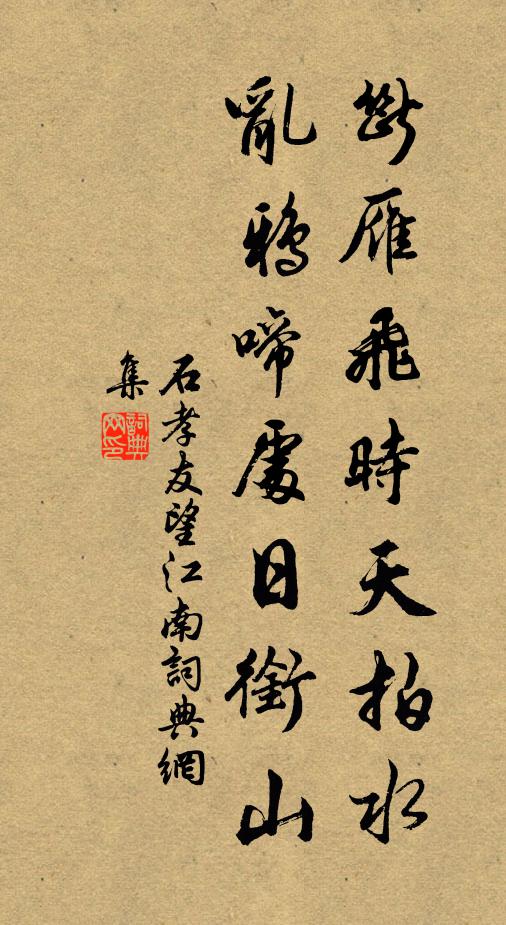 斷雁飛時天拍水
亂鴉啼處日銜山
石孝友望江南詞典網
集
詞典網印